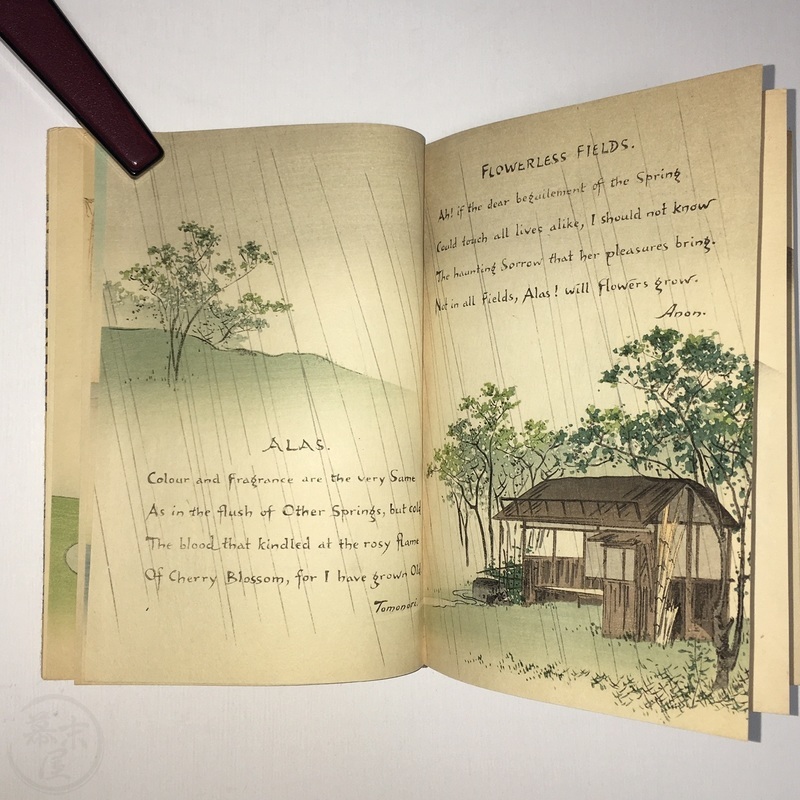 ALAS.
Colour and Fragrance are the very Same
As in the flush of Other Springs, but cold
The blood that kindled at the rosy flame
Of Cherry Blossom, for I have grown Old
Tomonori.
FLOWERLESS FIELDS.
Ah! if the dear beguilement of the Spring
Could touch all lives alike, I should not know
The haunting Sorrow that her pleasures bring.
Not in all Fields, Alas! will flowers grow.
Anon.
幕末屋